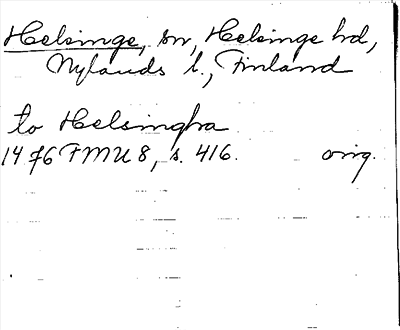 Helsinge, sn, Helsinge hd,
Nylands l., Finland
to Helsingha
1476 FMU 8, s. 416. orig.